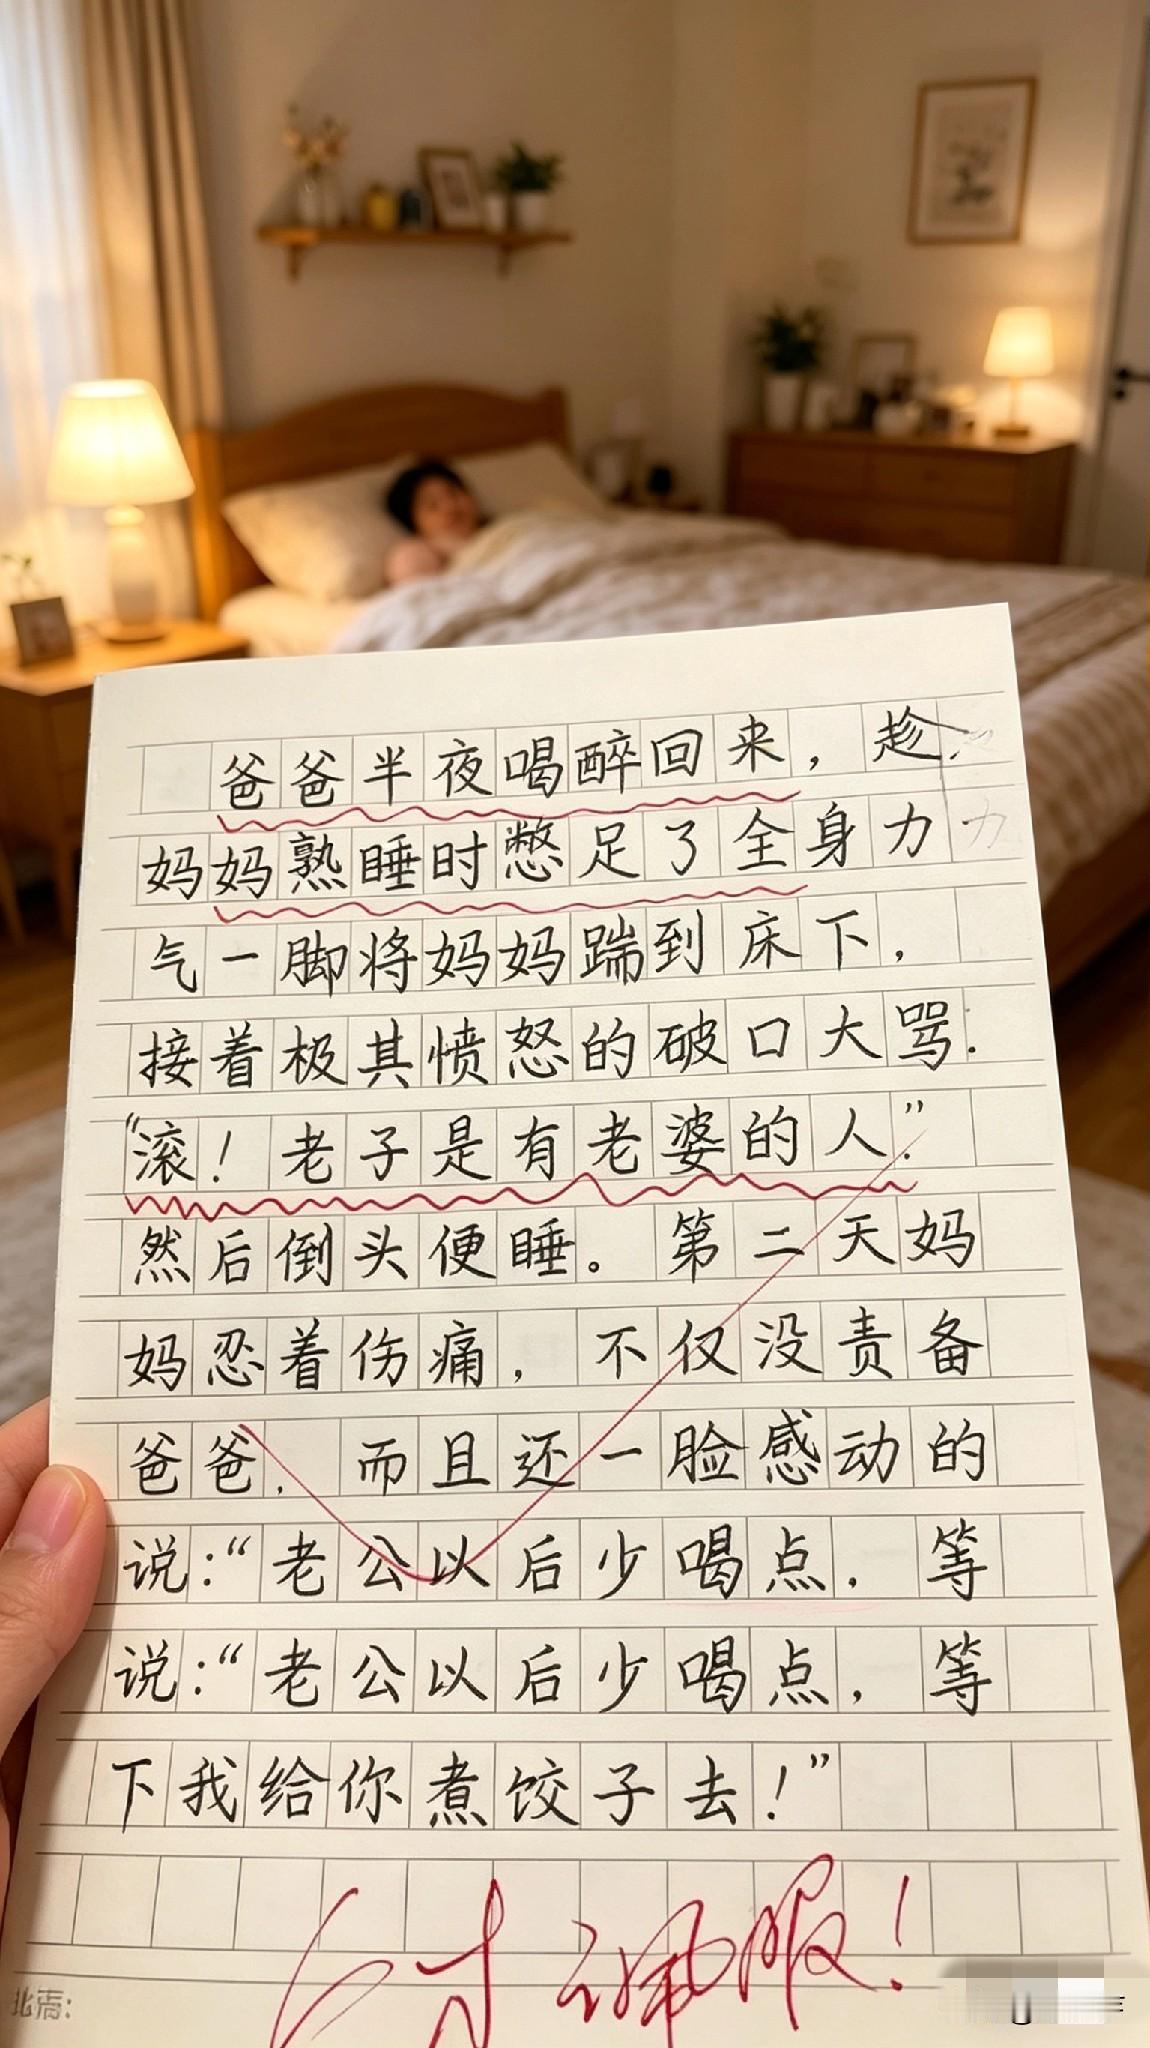 爸爸半夜喝醉回来，趁
妈妈熟睡时憋足了全身力
气一脚将妈妈踹到床下，
接着极其愤怒的破口大骂:
“滚！老子是有老婆的人.”
然后倒头便睡。第二天妈
妈忍着伤痛，不仅没责备
爸爸．而且还一脸感动的
说:“老公以后少喝点．等
说:“老公以后少喝点，等
下我给你煮饺子去！”